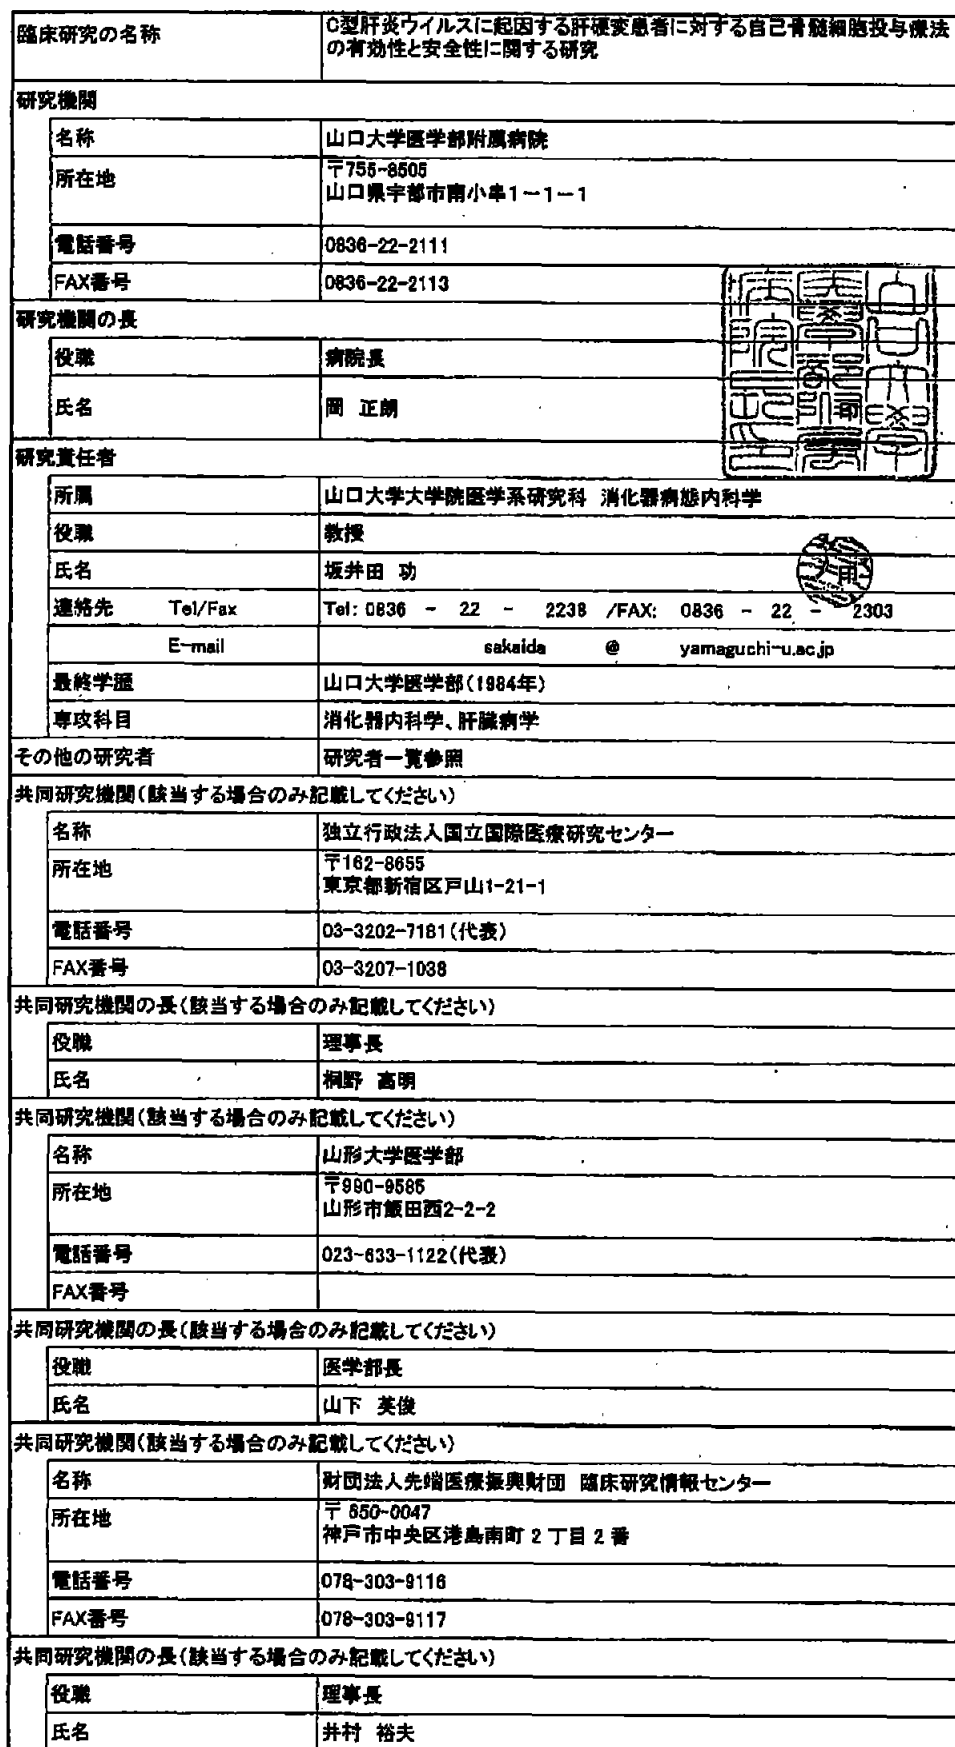 臨床研究の名称
C型肝炎ウイルスに起因する肝硬変患者に対する自己骨髄細胞投与療法
の有効性と安全性に関する研究
研究機関
名称 山口大学医学部附属病院
所在地 〒755-8505
山口県宇部市南小串1-1-1
電話番号 0836-22-2111
FAX番号 0836-22-2113
研究機関の長
役職 病院長
氏名 岡 正朗
研究責任者
所属 山口大学大学院医学系研究科 消化器病態内科学
役職 教授
氏名 坂井田 功
連絡先 Tel/Fax Tel: 0836 - 22 - 2238 /FAX: 0836 - 22 - 2303
E-mail sakaida @ yamaguchi-u.ac.jp
最終学歴 山口大学医学部(1984年)
専攻科目 消化器内科学、肝臓病学
その他の研究者 研究者一覧参照
共同研究機関(該当する場合のみ記載してください)
名称 独立行政法人国立国際医療研究センター
所在地 〒162-8655
東京都新宿区戸山1-21-1
電話番号 03-3202-7181(代表)
FAX番号 03-3207-1038
共同研究機関の長(該当する場合のみ記載してください)
役職 理事長
氏名 桐野 高明
共同研究機関(該当する場合のみ記載してください)
名称 山形大学医学部
所在地 〒990-9585
山形市飯田西2-2-2
電話番号 023-633-1122(代表)
FAX番号
共同研究機関の長(該当する場合のみ記載してください)
役職 医学部長
氏名 山下 英俊
共同研究機関(該当する場合のみ記載してください)
名称 財団法人先端医療振興財団 臨床研究情報センター
所在地 〒 650-0047
神戸市中央区港島南町 2 丁目 2 番
電話番号 078-303-9116
FAX番号 078-303-9117
共同研究機関の長(該当する場合のみ記載してください)
役職 理事長
氏名 井村 裕夫